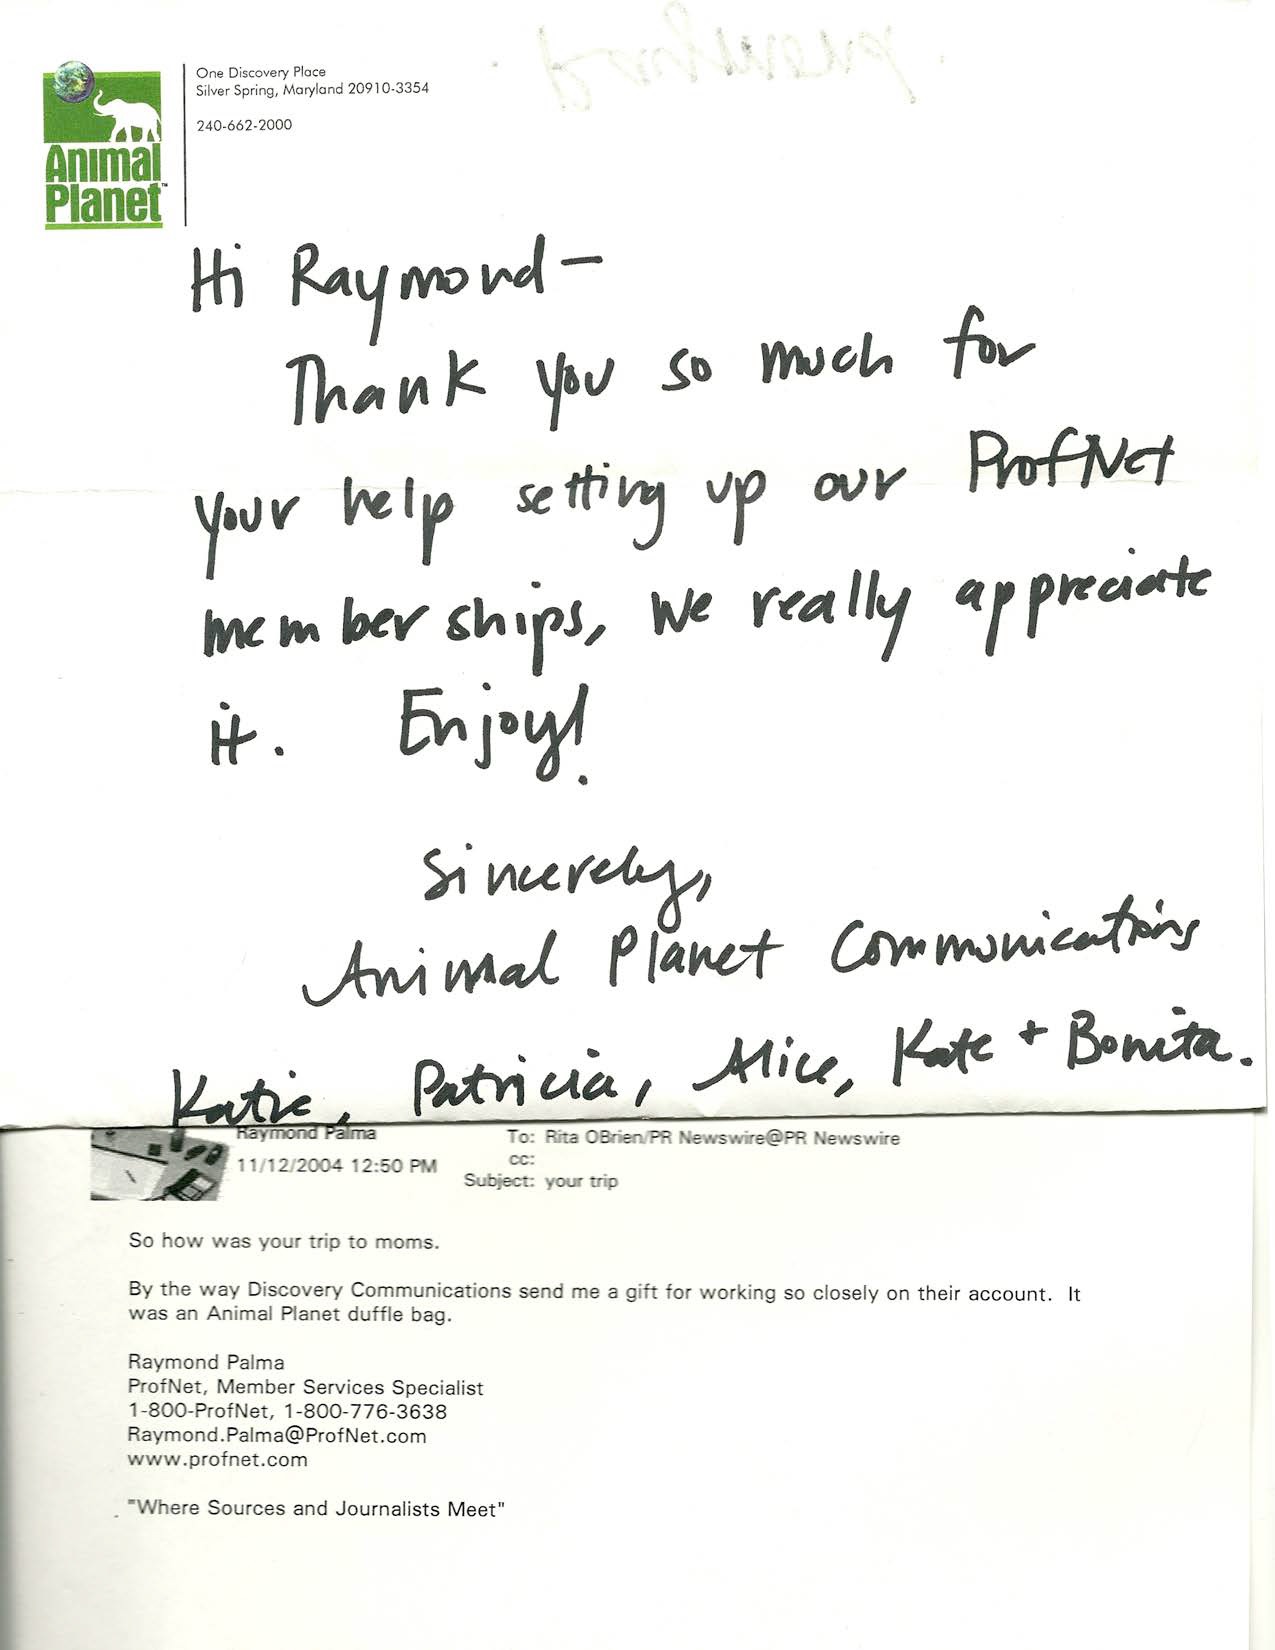 Raymond
One Discovery Place
Silver Spring, Maryland 20910-3354
240-662-2000
Animal
Planet™
Hi Raymond—
Thank you so much for
your help setting up our ProfNet
memberships, we really appreciate
it. Enjoy!
Sincerely,
Animal Planet Communications
Katie, Patricia, Alice, Kate + Bonita.
Raymond Palma
11/12/2004 12:50 PM
To: Rita OBrien/PR Newswire@PR Newswire
cc:
Subject: your trip
So how was your trip to moms.
By the way Discovery Communications send me a gift for working so closely on their account. It
was an Animal Planet duffle bag.
Raymond Palma
ProfNet, Member Services Specialist
1-800-ProfNet, 1-800-776-3638
Raymond.Palma@ProfNet.com
www.profnet.com
"Where Sources and Journalists Meet"